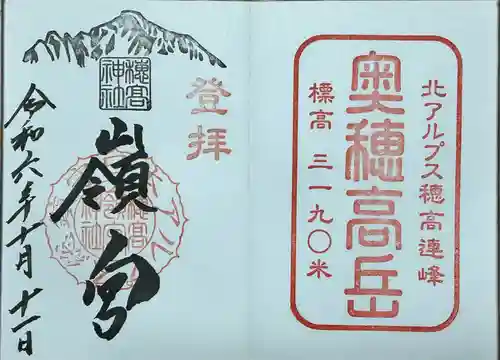 北アルプス穂高連峰
奥穂高岳
標高 三一九〇米
登拝
穂高
神社
嶺宮
令和六年十月十一日